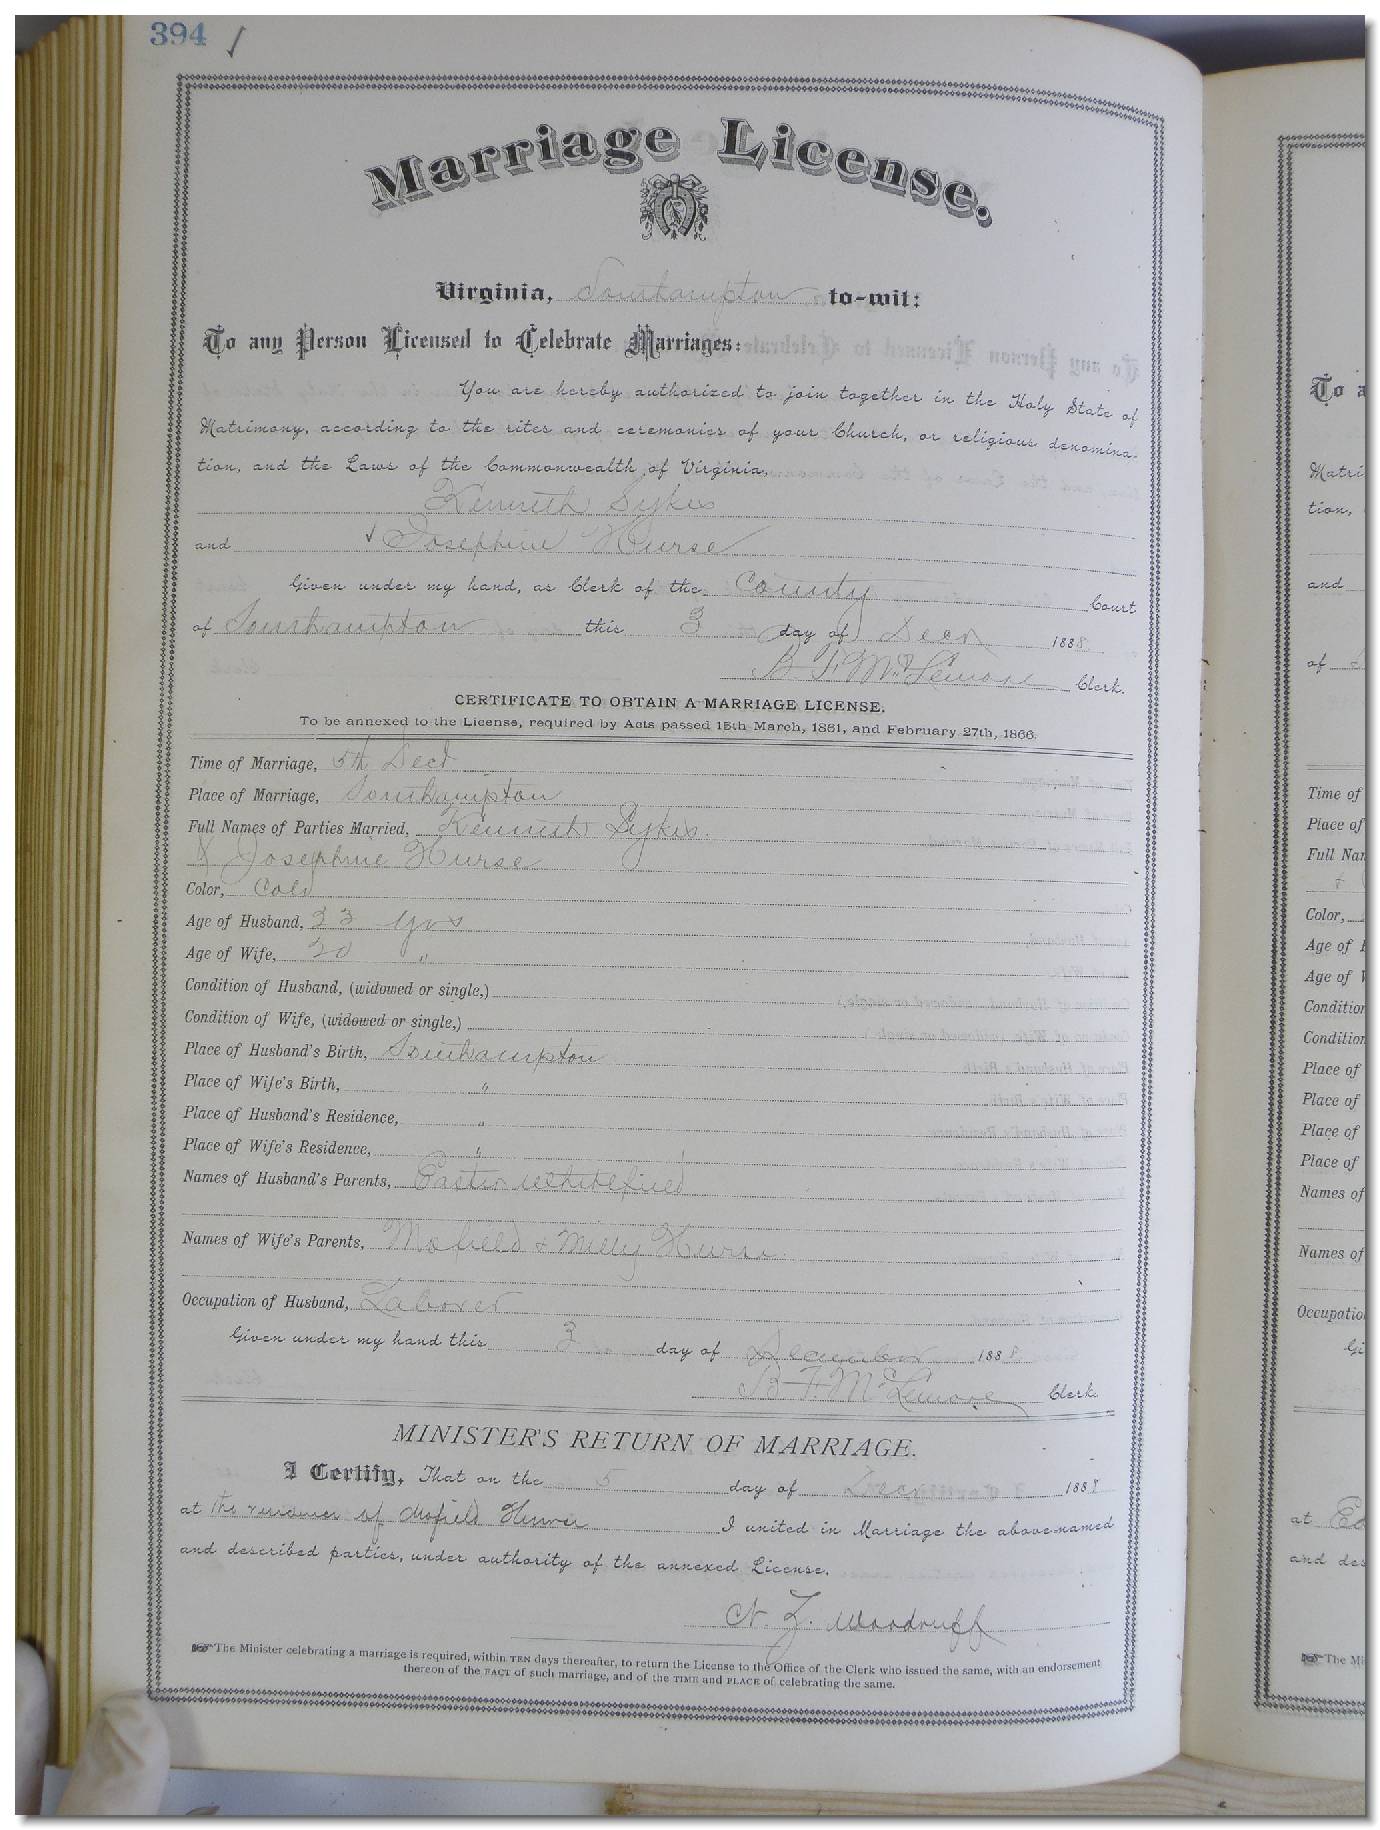 394 ✓
Marriage License.
Virginia, Southampton to-wit:
To any Person Licensed to Celebrate Marriages:
You are hereby authorized to join together in the Holy State of
Matrimony, according to the rites and ceremonies of your Church, or religious denomina-
tion, and the Laws of the Commonwealth of Virginia,
Kenneth Sykes
and ✓ Josephine Hurse
Given under my hand, as Clerk of the County Court
of Southampton this 3 day of Decr 1888
B. F. McLemore Clerk.
CERTIFICATE TO OBTAIN A MARRIAGE LICENSE.
To be annexed to the License, required by Acts passed 15th March, 1861, and February 27th, 1866.
Time of Marriage, 5th Decr
Place of Marriage, Southampton
Full Names of Parties Married, Kenneth Sykes
& Josephine Hurse
Color, Cold
Age of Husband, 23 yrs
Age of Wife, 20 "
Condition of Husband, (widowed or single,)
Condition of Wife, (widowed or single,)
Place of Husband's Birth, Southampton
Place of Wife's Birth, "
Place of Husband's Residence, "
Place of Wife's Residence, "
Names of Husband's Parents, Easter Whitefield
Names of Wife's Parents, Mofield & Milly Hurse
Occupation of Husband, Laborer
Given under my hand this 3 day of December 1888
B. F. McLemore Clerk.
MINISTER'S RETURN OF MARRIAGE.
I Certify, That on the 5 day of Decr 1888
at the residence of Mofield I united in Marriage the above-named
and described parties, under authority of the annexed License.
N. Z. Woodruff
The Minister celebrating a marriage is required, within TEN days thereafter, to return the License to the Office of the Clerk who issued the same, with an endorsement
thereon of the FACT of such marriage, and of the TIME and PLACE of celebrating the same.
To a
Matri
tion,
and
of
Time of
Place of
Full Nar
Color,
Age of
Age of
Condition
Condition
Place of
Place of
Place of
Place of
Names of
Names of
Occupatio
Gi
at
and des
The Mi